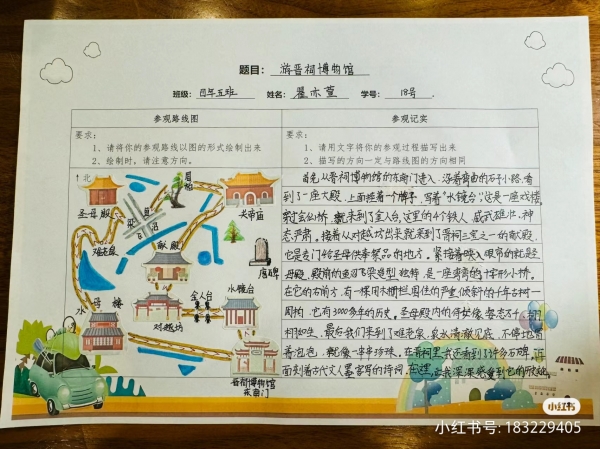 题目: 游晋祠博物馆
班级: 四年五班 姓名: 翟亦萱 学号: 18号
参观路线图
要求:
1、请将你的参观路线以图的形式绘制出来
2、绘制时,请注意方向。
北
圣母殿
鱼沼飞梁
周柏
关帝庙
难老泉
献殿
唐碑
水母楼
对越坊
金人台
水镜台
晋祠博物馆
东南门
参观记实
要求:
1、请用文字将你的参观过程描写出来
2、描写的方向一定与路线图的方向相同
首先从晋祠博物馆的东南门进入,沿着弯曲的石子小路,看
到了一座大殿,上面挂着一个牌子,写着“水镜台”这是一座戏楼,
穿过会仙桥,就来到了金人台,这里的4个铁人,威武雄壮,神
态严肃。接着从对越坊出来就来到了晋祠三宝之一的献殿,
它是专门给圣母供奉祭品的地方。紧接着映入眼帘的就是圣
母殿,殿前的鱼沼飞梁造型独特,是一座离奇的十字形小桥。
在它的右前方,有一棵用木栅栏围住的严重倾斜的千年古树—
周柏,它有3000多年的历史,圣母殿内的侍女像,姿态各
栩栩如生,最后我们来到了难老泉,泉水清澈见底,不停地冒
着泡泡,就像一串串珍珠,在晋祠里我还看到了许多石碑,
面刻着古代文人墨客写的诗词,在这,让我深深感受到它的历史
小红书
小红书号: 183229405